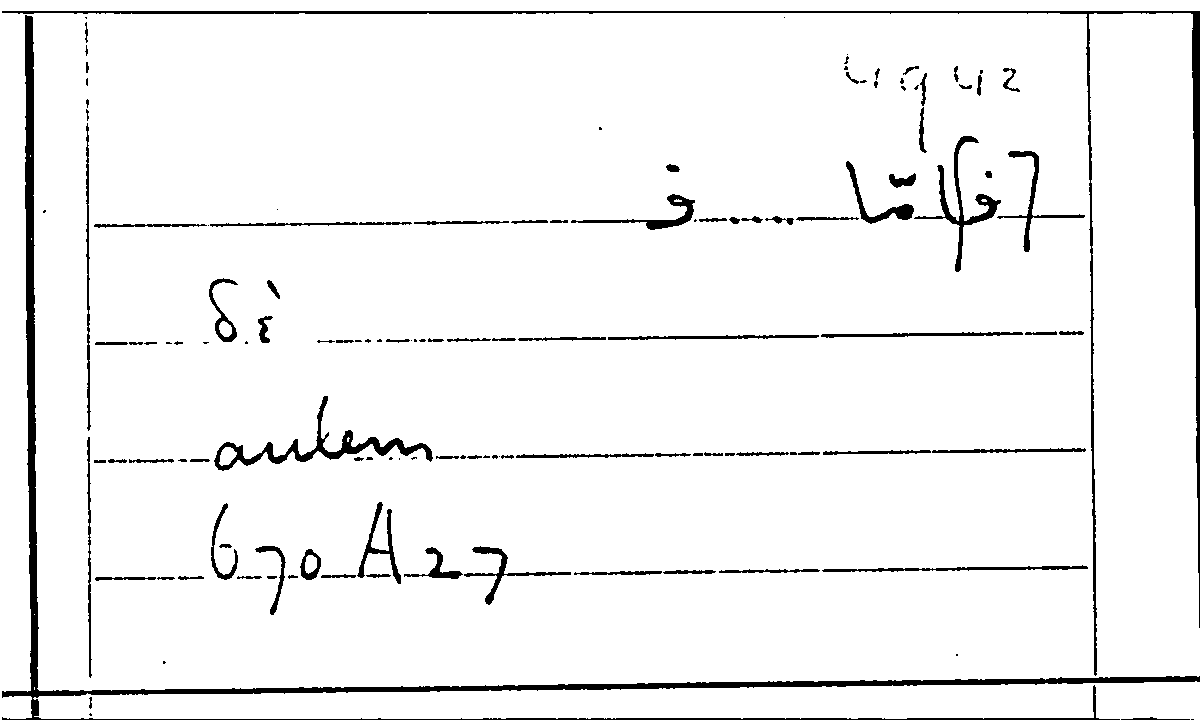 4942
[فأمّا ..... ف
δὲ
autem
670 A 27